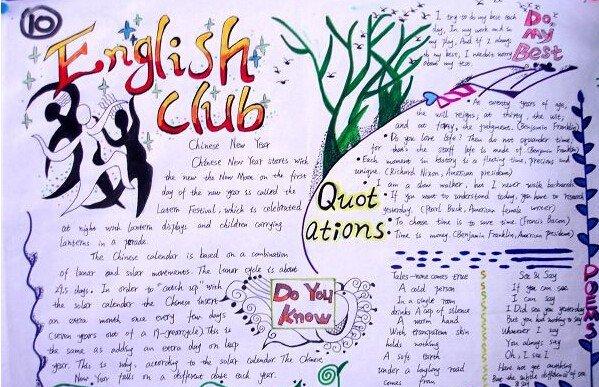 10
English
Club
Chinese New Year
Chinese New Year starts with
the new the New Moon on the first
day of the new year is called the
Latern Festival, which is celebrated
at night with lantern displays and children carrying
lanterns in a parade.
The Chinese calendar is based on a combination
of lunar and solar movements. The lunar cycle is about
29.5 days. In order to "catch up" with
the solar calendar the Chinese insert
an extra month once every few days
(seven years out of a 19-yearcycle) This is
the same as adding an extra day on leap
year. This is why, according to the solar calendar. The Chinese
New Year falls on a different date each year.
I try to do my best each
day, In my work and in
my play, And if I always
do my best, I needn't worry
about my tess.
Do
My
Best
Quot
ations:
At twenty years of age,
the will reigns, at thirty, the wit;
and at forty, the judgment. (Benjamin Franklin)
Do you love life? Then do not squander time,
for that's the stuff life is made of. (Benjamin Franklin)
Each moment in history is a fleeting time, precious and
unique. (Richard Nixon, American president)
I am a slow walker, but I never walk backwards.
If you want to understand today, you have to research
yesterday. (Pearl Buck, American female writer)
To choose time is to save time. (Francis Bacon)
Time is money. (Benjamin Franklin, American president)
Do You
Know
Tales
A cold person
In a single room
drinks A cup of silence
A warm hand
With transparent skin
holds nothing
A soft earth
under a laughing road
comes from
See & Say
If you can see
I can say
I Did See you yesterday
But you had nothing to say
Whenever I say
You always say
Oh, I see I
Have not got anything
POEMS